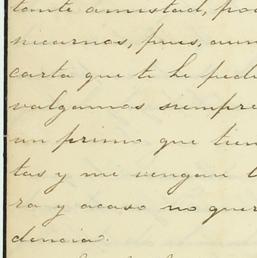 tante amistad, po
nicarnos, pues, aun
carta que te he pedi
valgamos siempre
un primo que tien
tas y me vengan l
ra y acaso no quer
dencia.